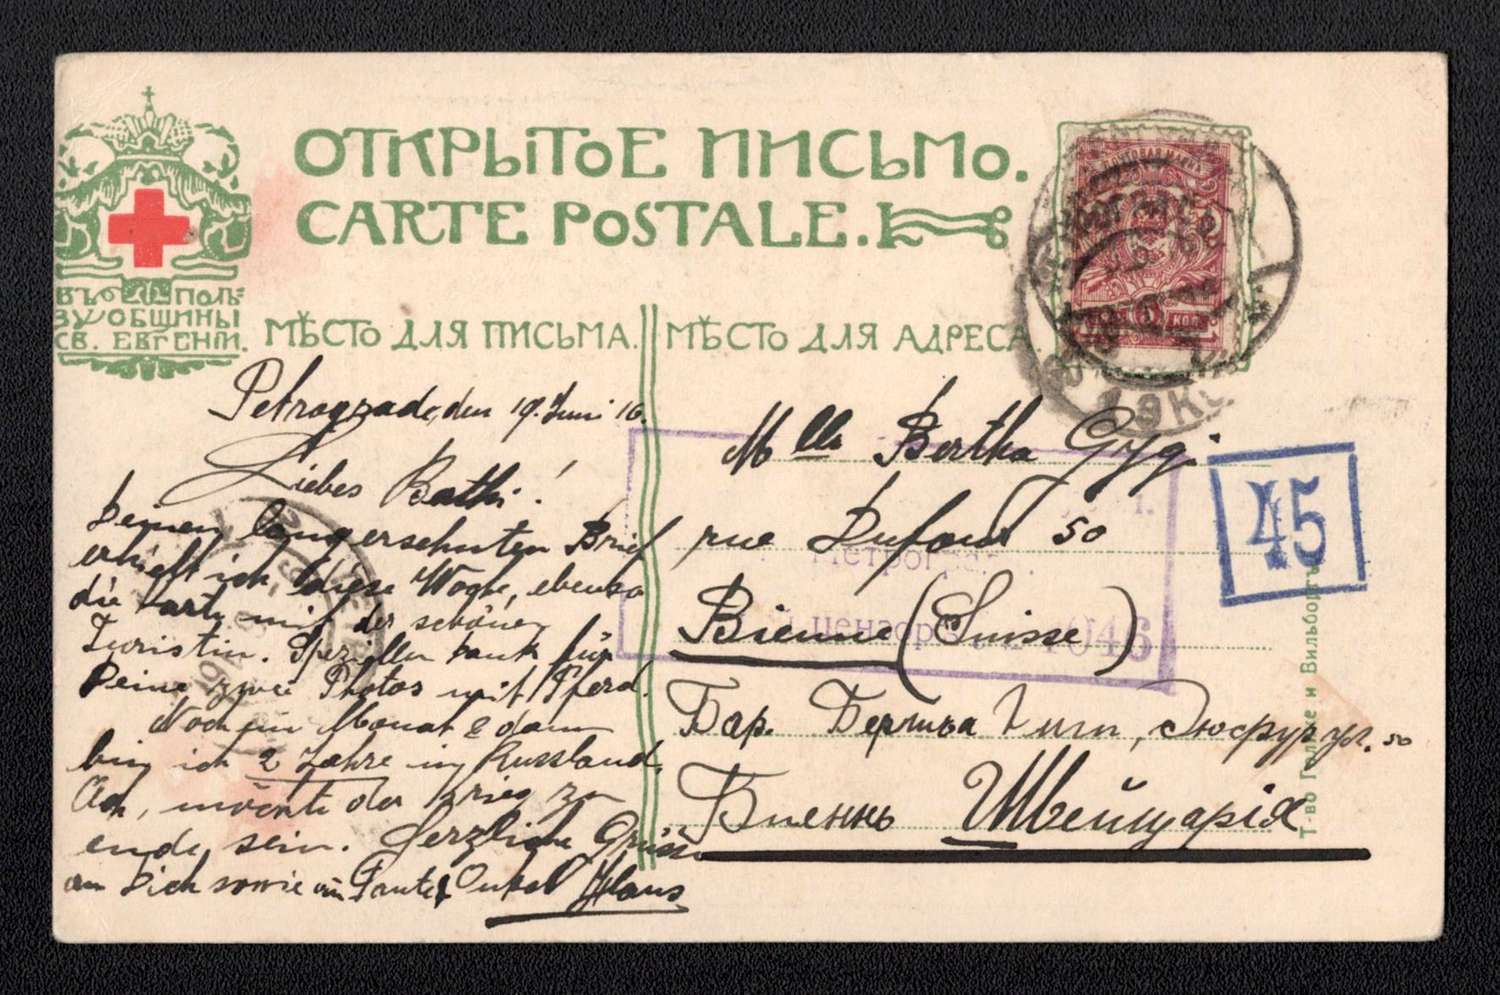 ОТКРЫТОЕ ПИСЬМО.
CARTE POSTALE.
ВЪ ПОЛЬ-
ЗУ ОБЩИНЫ
СВ. ЕВГЕНІИ.
МѢСТО ДЛЯ ПИСЬМА.
МѢСТО ДЛЯ АДРЕСА.
Petrograde, den 19. Juni 16.
Liebes Bethi!
Deinen langersehnten Brief
erhielt ich diese Woche, ebenso
die Karte mit der schönen
Juristin. Speziellen Dank für
Deine zwei Photos mit Pferd.
Noch ein Monat & dann
bin ich 2 Jahre in Russland,
Ach, möchte der Krieg zu
ende sein. Herzliche Grüsse
an Dich sowie an Tante & Onkel Hans
Mlle Bertha Gygi
rue Dufour 50
Bienne (Suisse)
Бар. Берта Гиги, Дюфур ул. 50
Биеннь Швейцарія
45
Петроград
цензор
1046
Т-во Голике и Вильборгъ